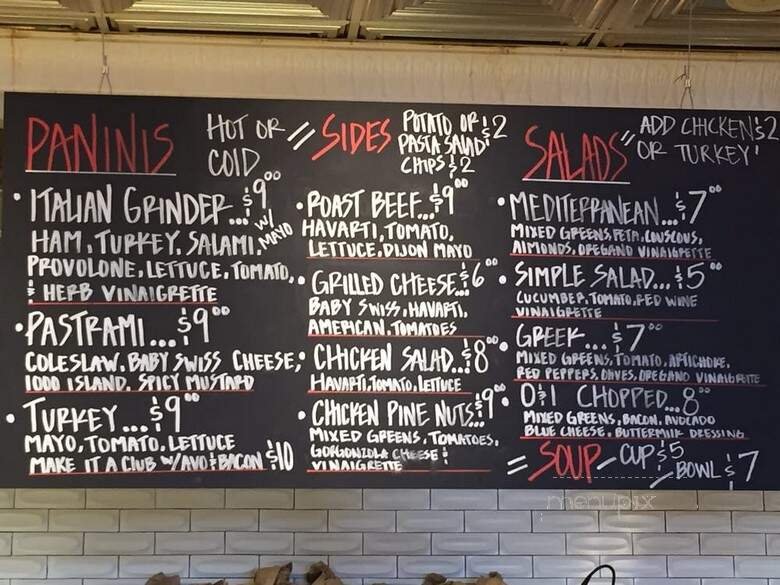 PANINIS
HOT OR
COLD
• ITALIAN GRINDER...$9⁰⁰
W/
MAYO
HAM, TURKEY, SALAMI,
PROVOLONE, LETTUCE, TOMATO,
& HERB VINAIGRETTE
• PASTRAMI...$9⁰⁰
COLESLAW, BABY SWISS CHEESE,
1000 ISLAND, SPICY MUSTARD
• TURKEY...$9⁰⁰
MAYO, TOMATO, LETTUCE
MAKE IT A CLUB W/AVO & BACON $10
// SIDES
POTATO OR $2
PASTA SALAD
CHIPS $2
• ROAST BEEF...$9⁰⁰
HAVARTI, TOMATO,
LETTUCE, DIJON MAYO
• GRILLED CHEESE $6⁰⁰
BABY SWISS, HAVARTI,
AMERICAN, TOMATOES
• CHICKEN SALAD..$8⁰⁰
HAVARTI, TOMATO, LETTUCE
• CHICKEN PINE NUTS $9⁰⁰
MIXED GREENS, TOMATOES,
GORGONZOLA CHEESE &
VINAIGRETTE
SALADS
"ADD CHICKEN $2
OR TURKEY"
• MEDITERRANEAN...$7⁰⁰
MIXED GREENS, FETA, COUSCOUS,
ALMONDS, OREGANO VINAIGRETTE
• SIMPLE SALAD...$5⁰⁰
CUCUMBER, TOMATO, RED WINE
VINAIGRETTE
• GREEK...$7⁰⁰
MIXED GREENS, TOMATO, ARTICHOKE,
RED PEPPERS, OLIVES, OREGANO VINAIGRETTE
• O&I CHOPPED...8⁰⁰
MIXED GREENS, BACON, AVOCADO
BLUE CHEESE, BUTTERMILK DRESSING
= SOUP - CUP $5
- BOWL $7
menupix